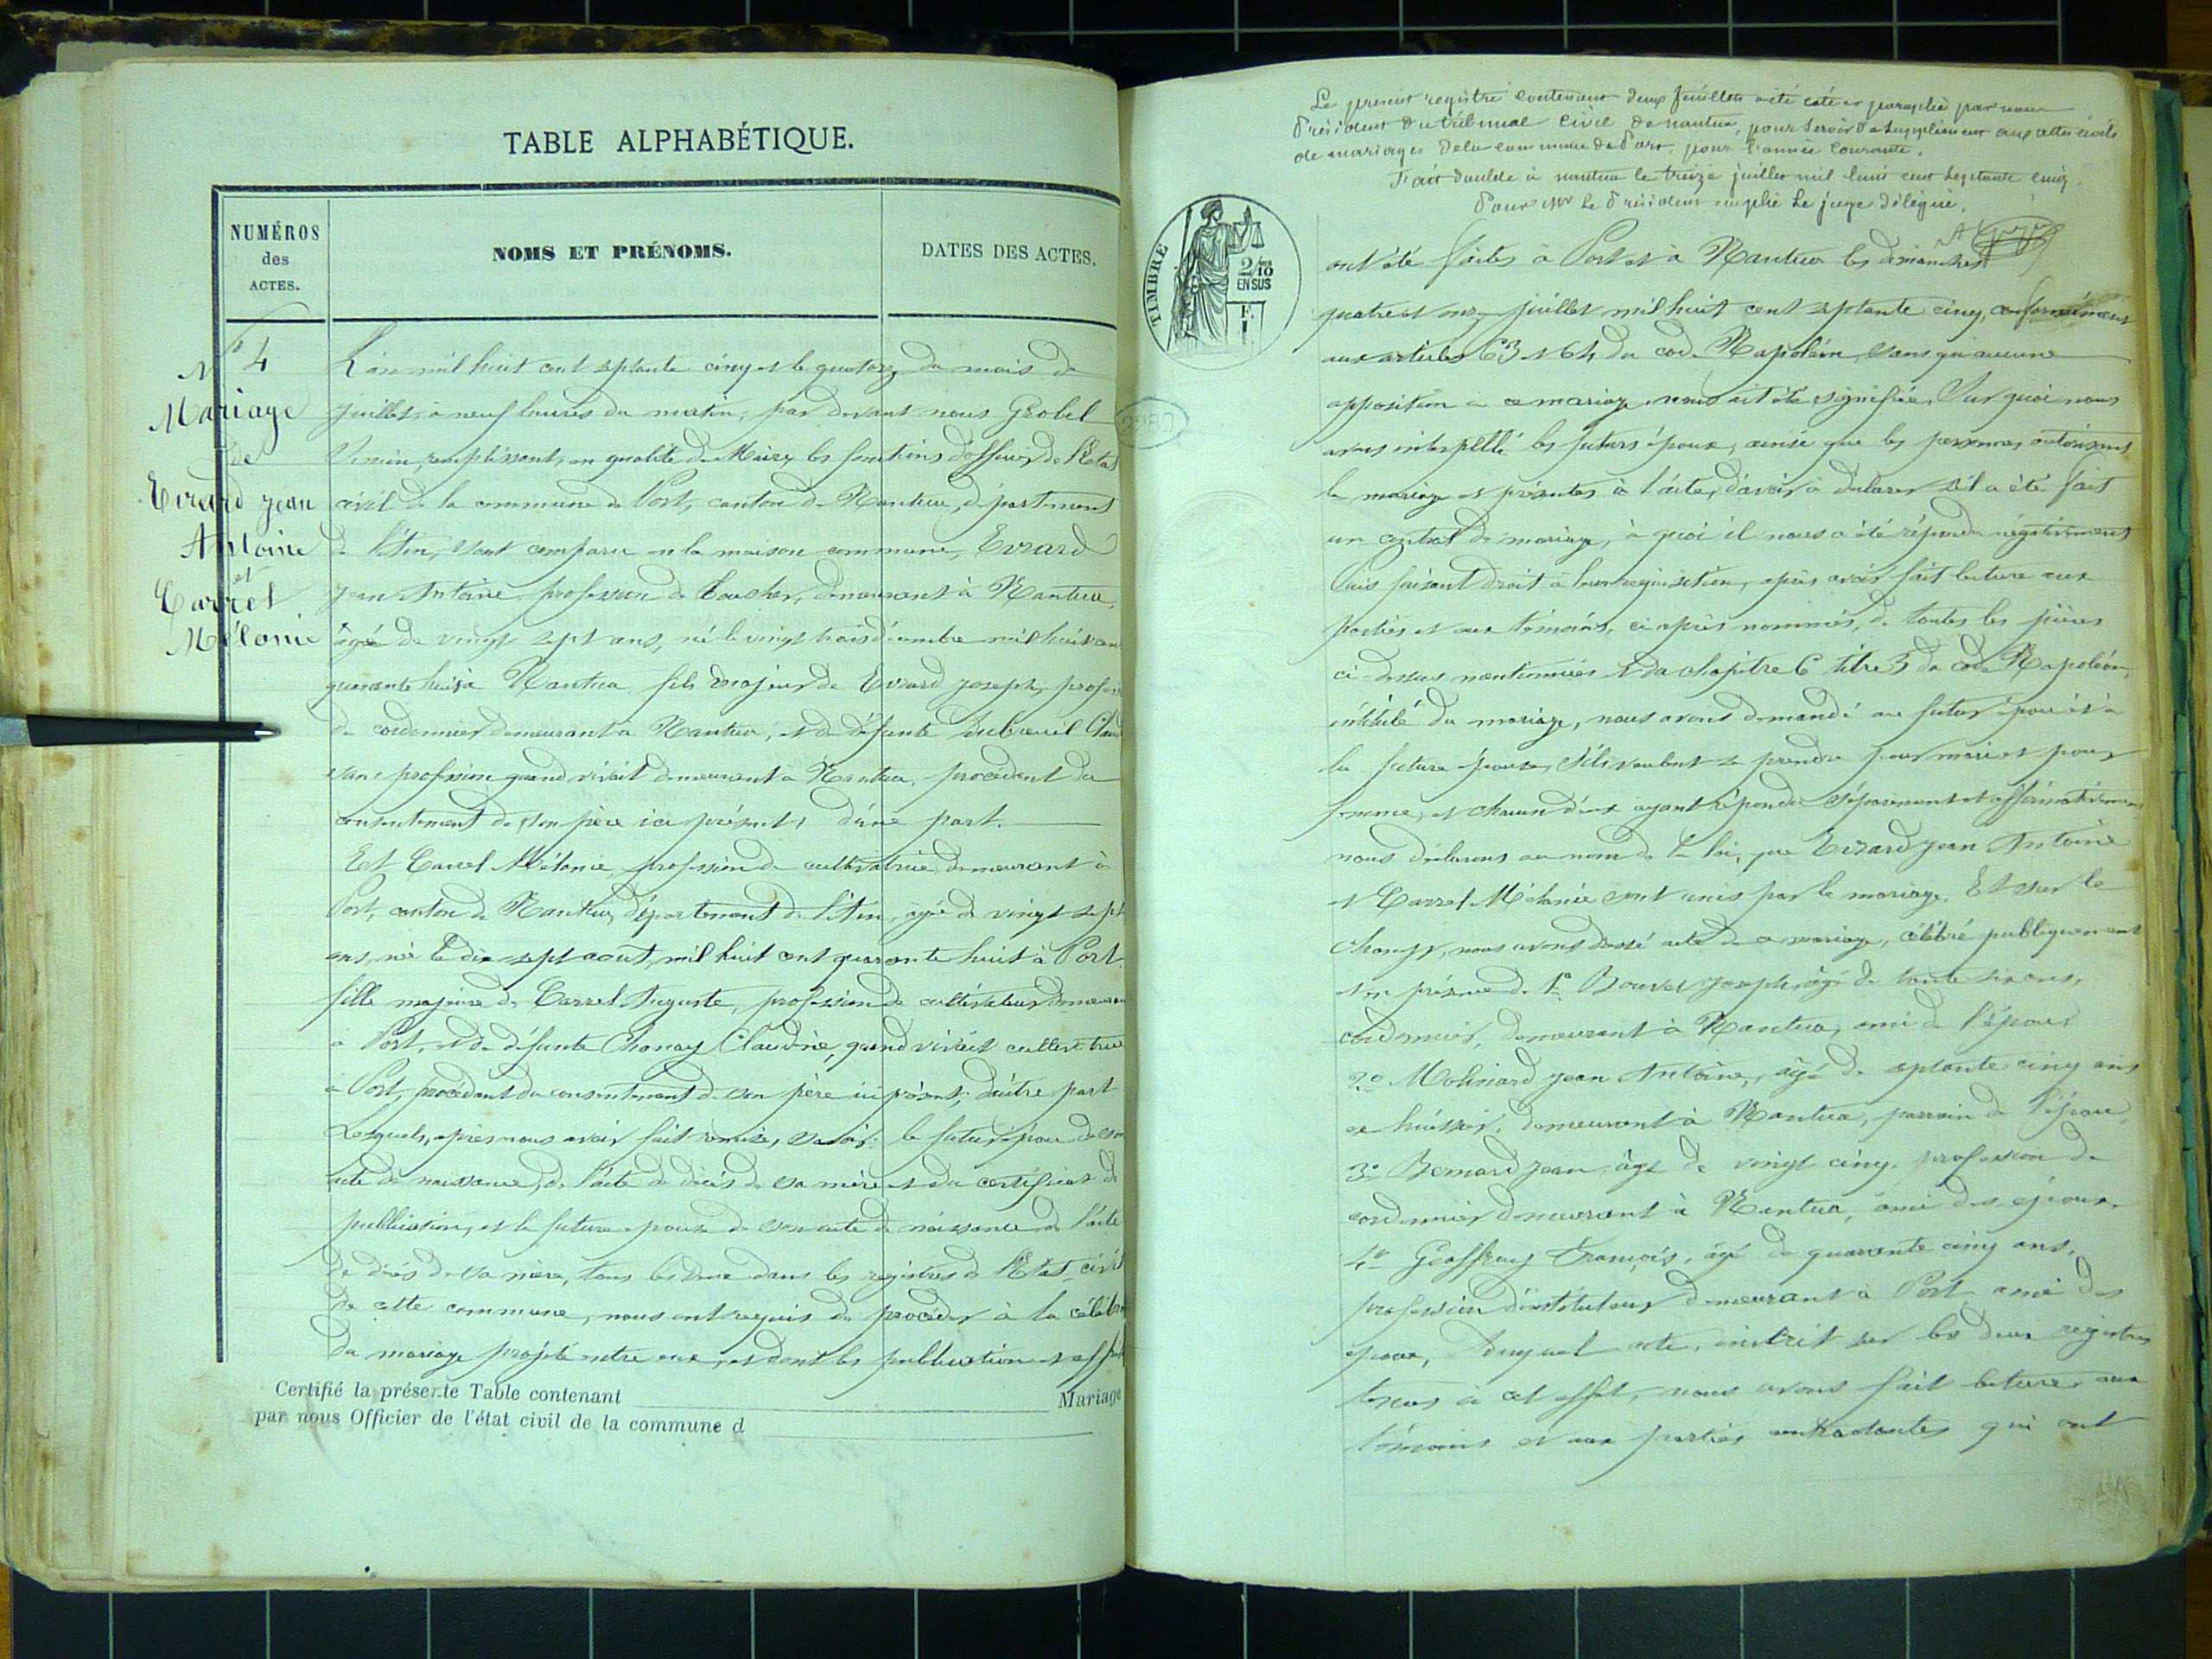 TABLE ALPHABÉTIQUE.
NUMÉROS
des
ACTES.
NOMS ET PRÉNOMS.
DATES DES ACTES.
N° 4
Mariage
de
Evrard Jean
Antoine
et
Carrel
Mélanie
L'an mil huit cent septante cinq et le quatorze du mois de
juillet, à neuf heures du matin, par devant nous Grobel
remplissant, en qualité de Maire, les fonctions d'officier de l'Etat
civil de la commune de Port, canton de Nantua, département
de l'Ain, sont comparu en la maison commune, Evrard
Jean Antoine profession de boucher, demeurant à Nantua,
âgé de vingt sept ans, né le vingt trois décembre mil huit cent
quarante huit à Nantua fils majeur de Evrard Joseph, profession
de cordonnier demeurant à Nantua, et de défunte Dubreuil
sans profession quand vivait demeurant à Nantua, procédant du
consentement de son père ici présent, d'une part.
Et Carrel Mélanie, profession de cultivatrice demeurant à
Port, canton de Nantua, département de l'Ain, âgée de vingt sept
ans, née le dix sept aout, mil huit cent quarante huit à Port.
fille majeure de Carrel Auguste, profession de cultivateur demeurant
à Port, et de défunte Chanay Claudine, quand vivait cultivatrice
à Port, procédant du consentement de son père ici présent, d'autre part
Lesquels, après nous avoir fait remise, savoir: le futur époux de son
acte de naissance, de l'acte de décès de sa mère et du certificat de
publication, et la future épouse de son acte de naissance de l'acte
de décès de sa mère, tous les deux dans les registres de l'Etat civil
de cette commune, nous ont requis de procéder à la célébration
du mariage projeté entre eux, et dont les publications et affiches
Certifié la présente Table contenant Mariage
par nous Officier de l'état civil de la commune d
Le présent registre contenant deux feuillets a été coté et paraphé par nous
Président du tribunal civil de nantua, pour servir de supplément aux actes civils
de mariages de la commune de Port, pour l'année courante.
Fait double à nantua le treize juillet mil huit cent septante cinq.
Pour Mr le Président empêché le juge délégué,
TIMBRE
2/10
EN SUS
ont été faites à Port et à Nantua les dimanches
quatre et onze juillet mil huit cent septante cinq, conformément
aux articles 63 et 64 du code Napoléon, sans qu'aucune
opposition à ce mariage nous ait été signifiée. Sur quoi nous
avons interpellé les futurs époux, ainsi que les personnes autorisant
le mariage et présentes à l'acte, d'avoir à déclarer s'il a été fait
un contrat de mariage, à quoi il nous a été répondu négativement
Puis faisant droit à leur réquisition, après avoir fait lecture aux
parties et aux témoins, ci après nommés, de toutes les pièces
ci-dessus mentionnées et du chapitre 6 titre 5 du code Napoléon,
intitulé du mariage, nous avons demandé au futur époux et à
la future épouse, s'ils veulent se prendre pour mari et pour
femme, et chacun d'eux ayant répondu séparément et affirmativement
nous déclarons au nom de la loi, que Evrard Jean Antoine
et Carrel Mélanie sont unis par le mariage. Et sur le
champ, nous avons dressé acte de ce mariage, célébré publiquement
et en présence de 1° Bouvet Joseph, âgé de trente six ans,
cordonnier, demeurant à Nantua, ami de l'époux
2° Molinard Jean Antoine, âgé de septante cinq ans
ex huissier, demeurant à Nantua, parrain de l'époux,
3° Bernard Jean, âgé de vingt cinq, profession de
cordonnier demeurant à Nantua, ami des époux.
4° Geoffray François, âgé de quarante cinq ans,
profession d'instituteur demeurant à Port ami des
époux, Duquel acte, inscrit sur les deux registres
tenus à cet effet, nous avons fait lecture aux
témoins et aux parties contractantes qui ont